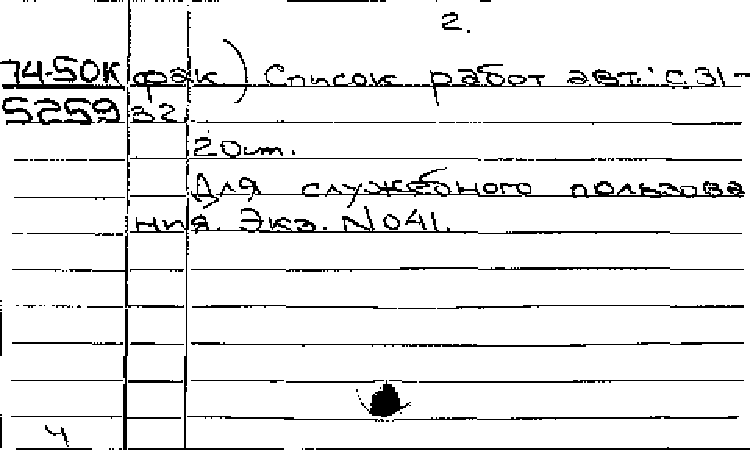 2.
74-50К фак) Список работ авт.: с.31-
5259 32
20 см.
Для служебного пользова
ния. Экз. N041.
4